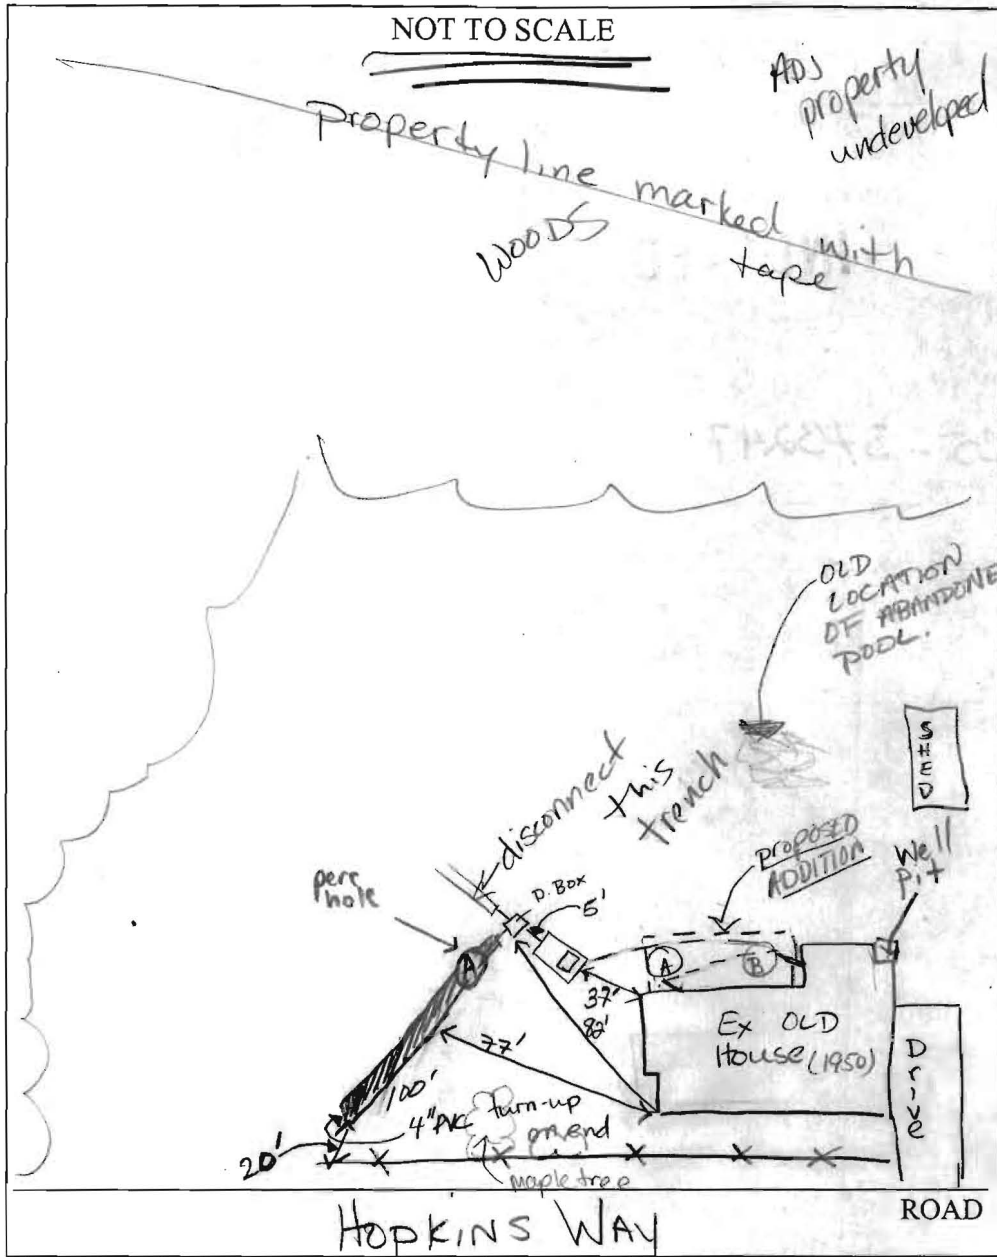 NOT TO SCALE
ADJ
property
undeveloped
Property line marked with
tape
WOODS
OLD
LOCATION
OF ABANDONE
POOL.
SHED
disconnect
this
trench
proposed
ADDITION
Well
pit
perc
hole
D. Box
5'
A
A
B
37'
82'
77'
Ex OLD
House (1950)
Drive
100'
4" PVC turn-up
on end
20'
maple tree
ROAD
HOPKINS WAY